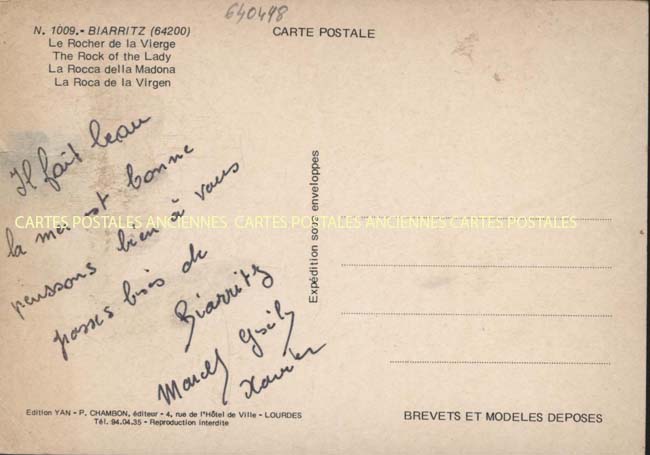 640448
N. 1009.- BIARRITZ (64200)
Le Rocher de la Vierge
The Rock of the Lady
La Rocca della Madona
La Roca de la Virgen
CARTE POSTALE
Il fait beau
la mer est bonne
penssons bien à vous
de
Biarritz
Marcel
Xavier
Expédition sous enveloppes
CARTES POSTALES ANCIENNES CARTES POSTALES ANCIENNES CARTES POSTALES
Edition YAN - P. CHAMBON, éditeur - 4, rue de l'Hôtel de Ville - LOURDES
Tél. 94.04.35 - Reproduction interdite
BREVETS ET MODELES DEPOSES